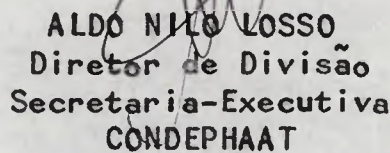 ALDO NILO LOSSO
Diretor de Divisão
Secretaria-Executiva
CONDEPHAAT